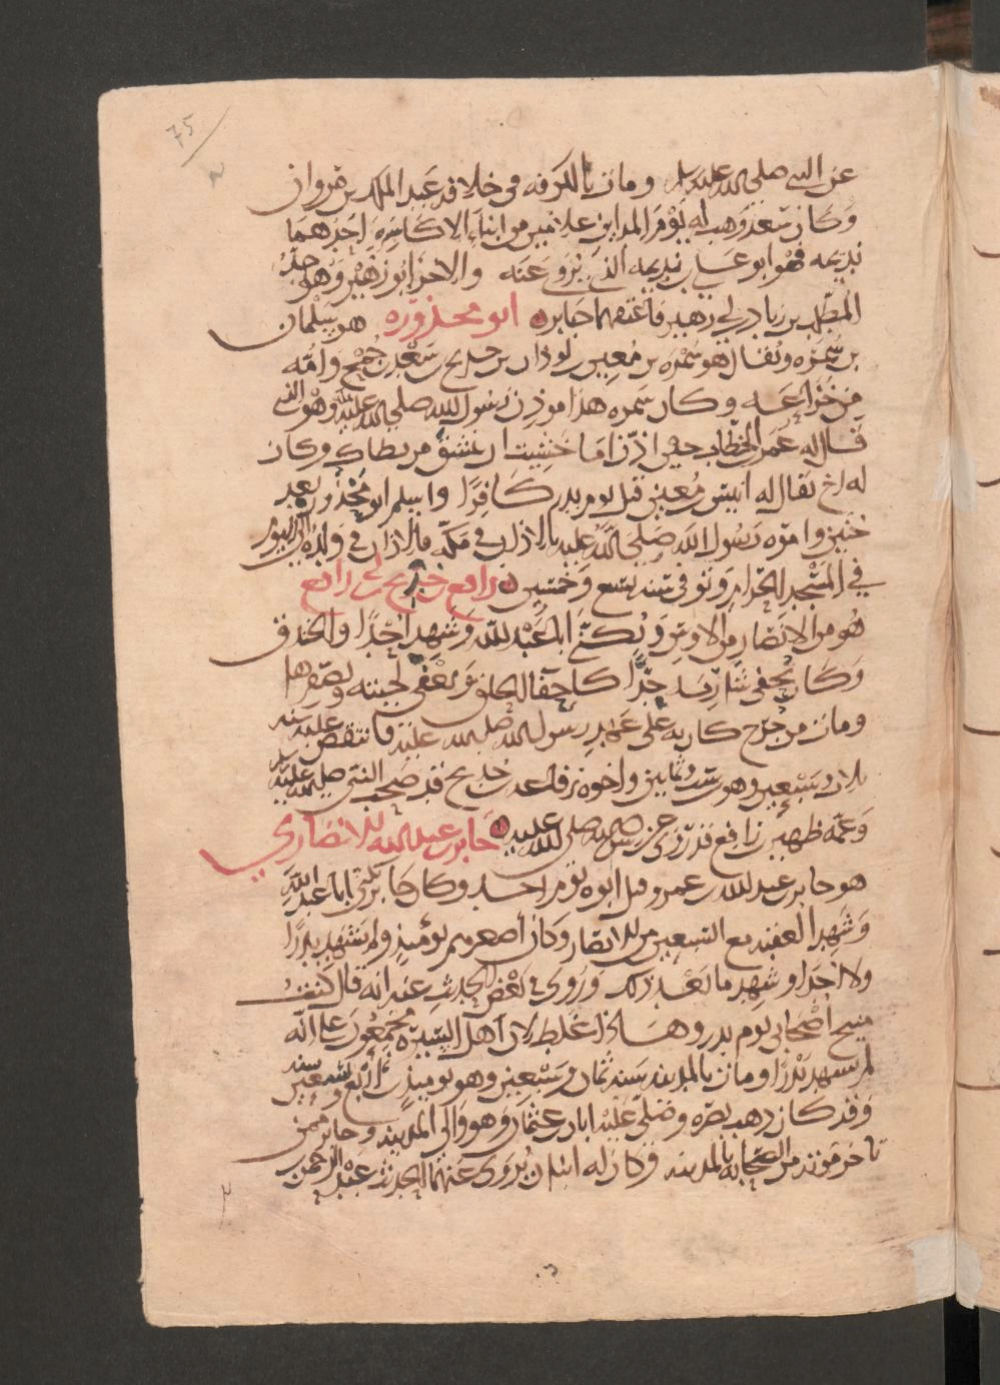 75
عن النبي صلى الله عليه وسلم ومات بالكوفة في خلافة عبد الملك بن مروان
وكان سعد وهب له يوم المداين غلامين من ابناء الاكاسره احدهما
نديمه فهو ابو عباس نديمه الذي يروى عنه والاخر ابو زهير وهو جد
المطلب بن زياد بن ابي زهير فاعتقهما جابر ابو محذوره هو سلمان
بن سمره ويقال هو سمره بن معير بن لوذان بن جريح بن سعد بن جمح وامه
من خزاعه وكان سمره هذا موذن رسول الله صلى الله عليه وهو الذي
قال له عمر بن الخطاب حين اذن اما خشيت ان ينشق مريطاك وكان
له اخ يقال له انيس بن معير قتل يوم بدر كافرا واسلم ابو محذوره بعد
حنين وامره رسول الله صلى الله عليه بالاذان في مكه فالاذان في ولده الى اليوم
في المسجد الحرام وتوفي سنة تسع وخمسين رافع بن خديج بن رافع
هو من الانصار من الاوس ويكنى ابا عبد الله وشهد احدا والخندق
وكان يحفي شاربه جدا كاحفا الحلق ويعفي لحيته ويصفرها
ومات من جرح كان به على عهد رسول الله صلى الله عليه فانتقض عليه سنه
ثلاث وسبعين وهو ست وثمانين واخوه رفاعه بن خديج قد صحب النبي صلى الله عليه
وعمه ظهير بن رافع قد روى عن رسول الله صلى الله عليه جابر بن عبد الله الانصاري
هو جابر بن عبد الله بن عمرو قتل ابوه يوم احد وكان جابر يكنى ابا عبد الله
وشهد العقبه مع السبعين من الانصار وكان اصغرهم يومئذ ولم يشهد بدرا
ولا احدا وشهد ما بعد ذلك وروى في بعض الحديث عنه انه قال كنت
منيح اصحابي يوم بدر وهذا غلط لان اهل السيره مجمعون على انه
لم يشهد بدرا ومات بالمدينه سنة ثمان وسبعين وهو يوميذ ابن اربع وتسعين سنه
وقد كان ذهب بصره وصلى عليه ابان بن عثمان وهو والي المدينه وجابر ممن
تاخر موته من الصحابه بالمدينه وكان له ابنان يروى عنهما الحديث عبد الرحمن